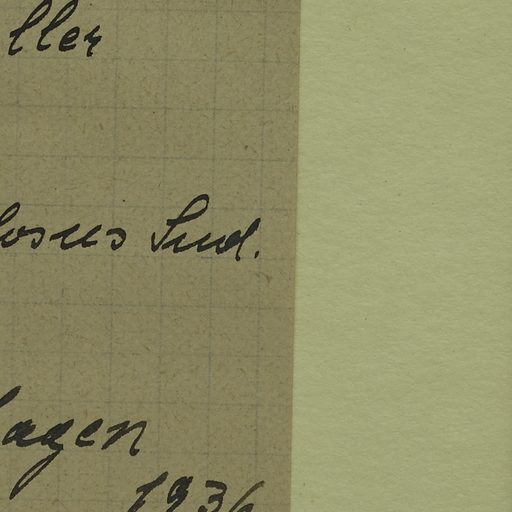 ller
losus Sud.
lagen
1936